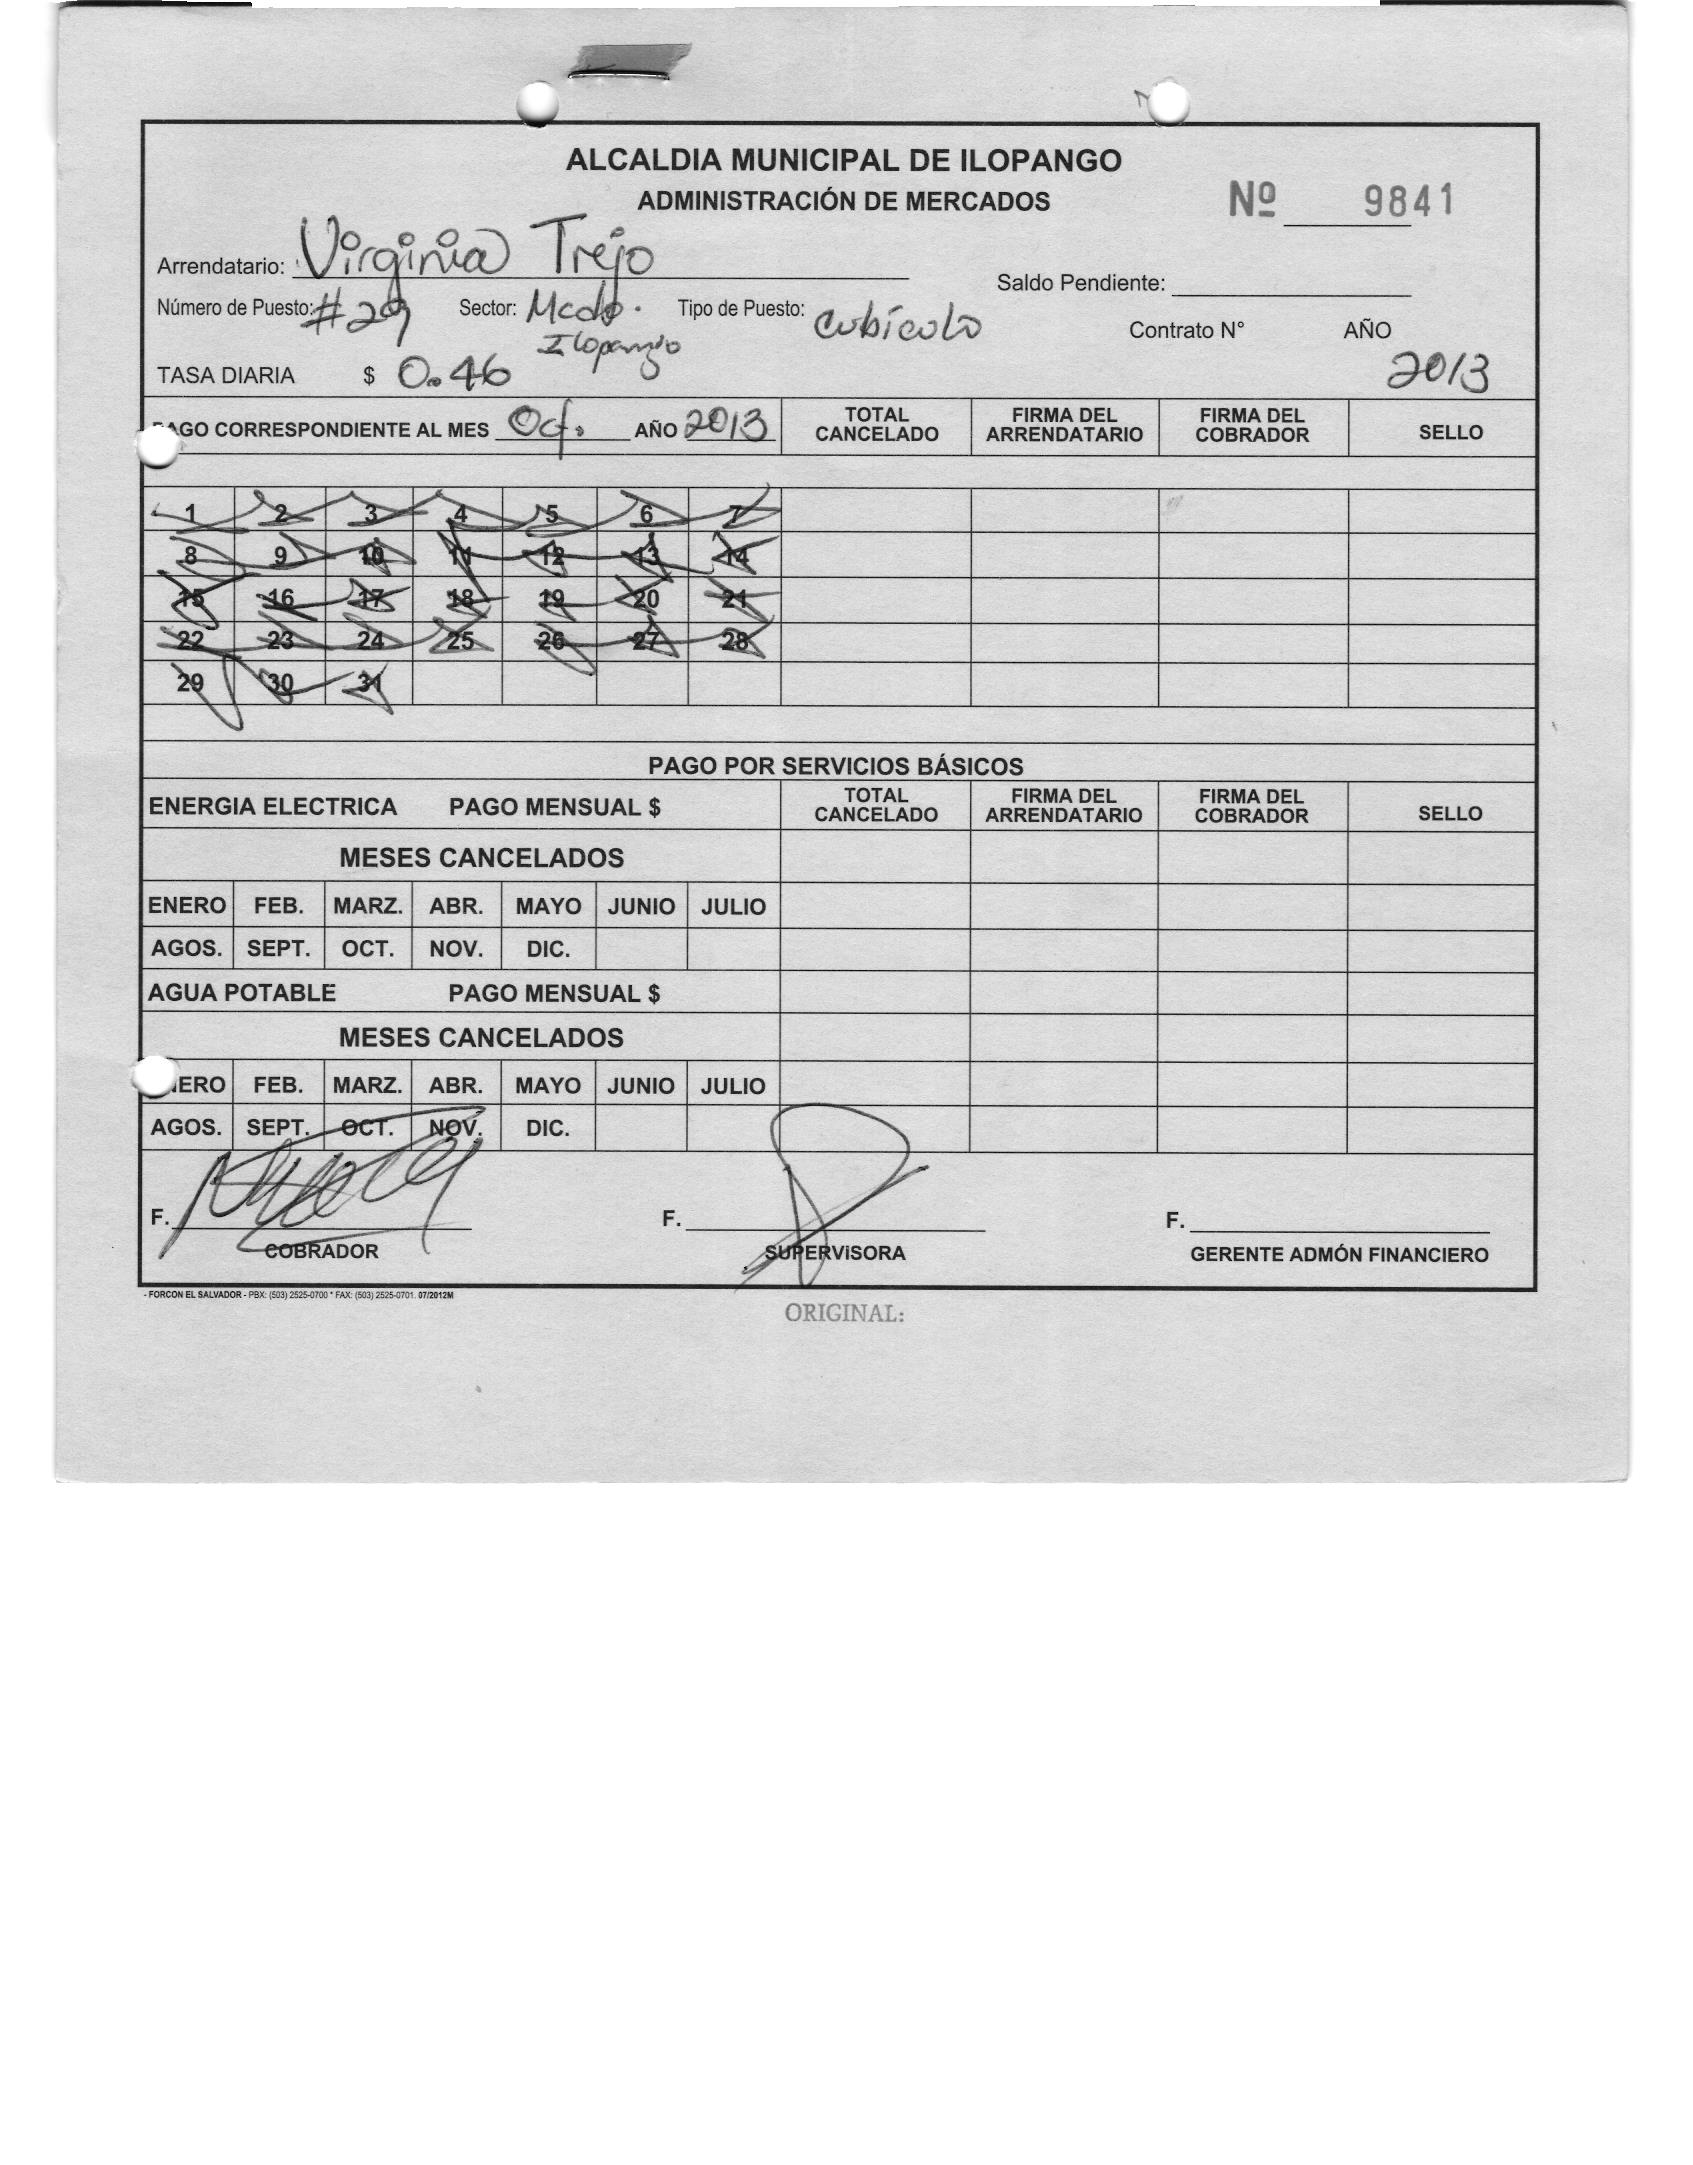 ALCALDIA MUNICIPAL DE ILOPANGO
ADMINISTRACIÓN DE MERCADOS
Nº 9841
Arrendatario: Virginia Trejo
Saldo Pendiente:
Número de Puesto: #29 Sector: Mcdo. Ilopango Tipo de Puesto: cubículo
Contrato N° AÑO 2013
TASA DIARIA $ 0.46
PAGO CORRESPONDIENTE AL MES Oct. AÑO 2013 TOTAL CANCELADO FIRMA DEL ARRENDATARIO FIRMA DEL COBRADOR SELLO
1 2 3 4 5 6 7
8 9 10 11 12 13 14
15 16 17 18 19 20 21
22 23 24 25 26 27 28
29 30 31
PAGO POR SERVICIOS BÁSICOS
ENERGIA ELECTRICA PAGO MENSUAL $ TOTAL CANCELADO FIRMA DEL ARRENDATARIO FIRMA DEL COBRADOR SELLO
MESES CANCELADOS
ENERO FEB. MARZ. ABR. MAYO JUNIO JULIO
AGOS. SEPT. OCT. NOV. DIC.
AGUA POTABLE PAGO MENSUAL $
MESES CANCELADOS
ENERO FEB. MARZ. ABR. MAYO JUNIO JULIO
AGOS. SEPT. OCT. NOV. DIC.
F. F. F.
COBRADOR SUPERVISORA GERENTE ADMÓN FINANCIERO
- FORCON EL SALVADOR - PBX: (503) 2525-0700 * FAX: (503) 2525-0701. 07/2012M
ORIGINAL: